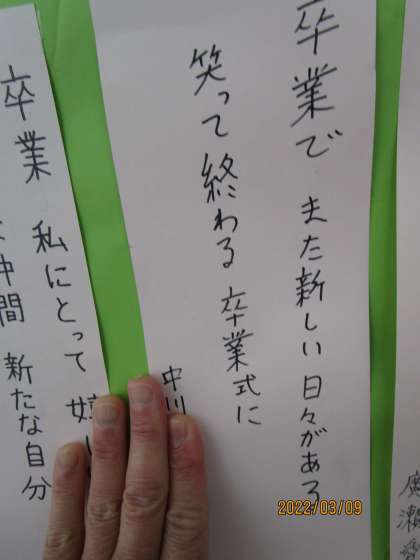 卒業で また新しい日々がある
笑って終わる卒業式に
中川
卒業 私にとって 嬉し
仲間 新たな自分
廣瀬
2022/03/09